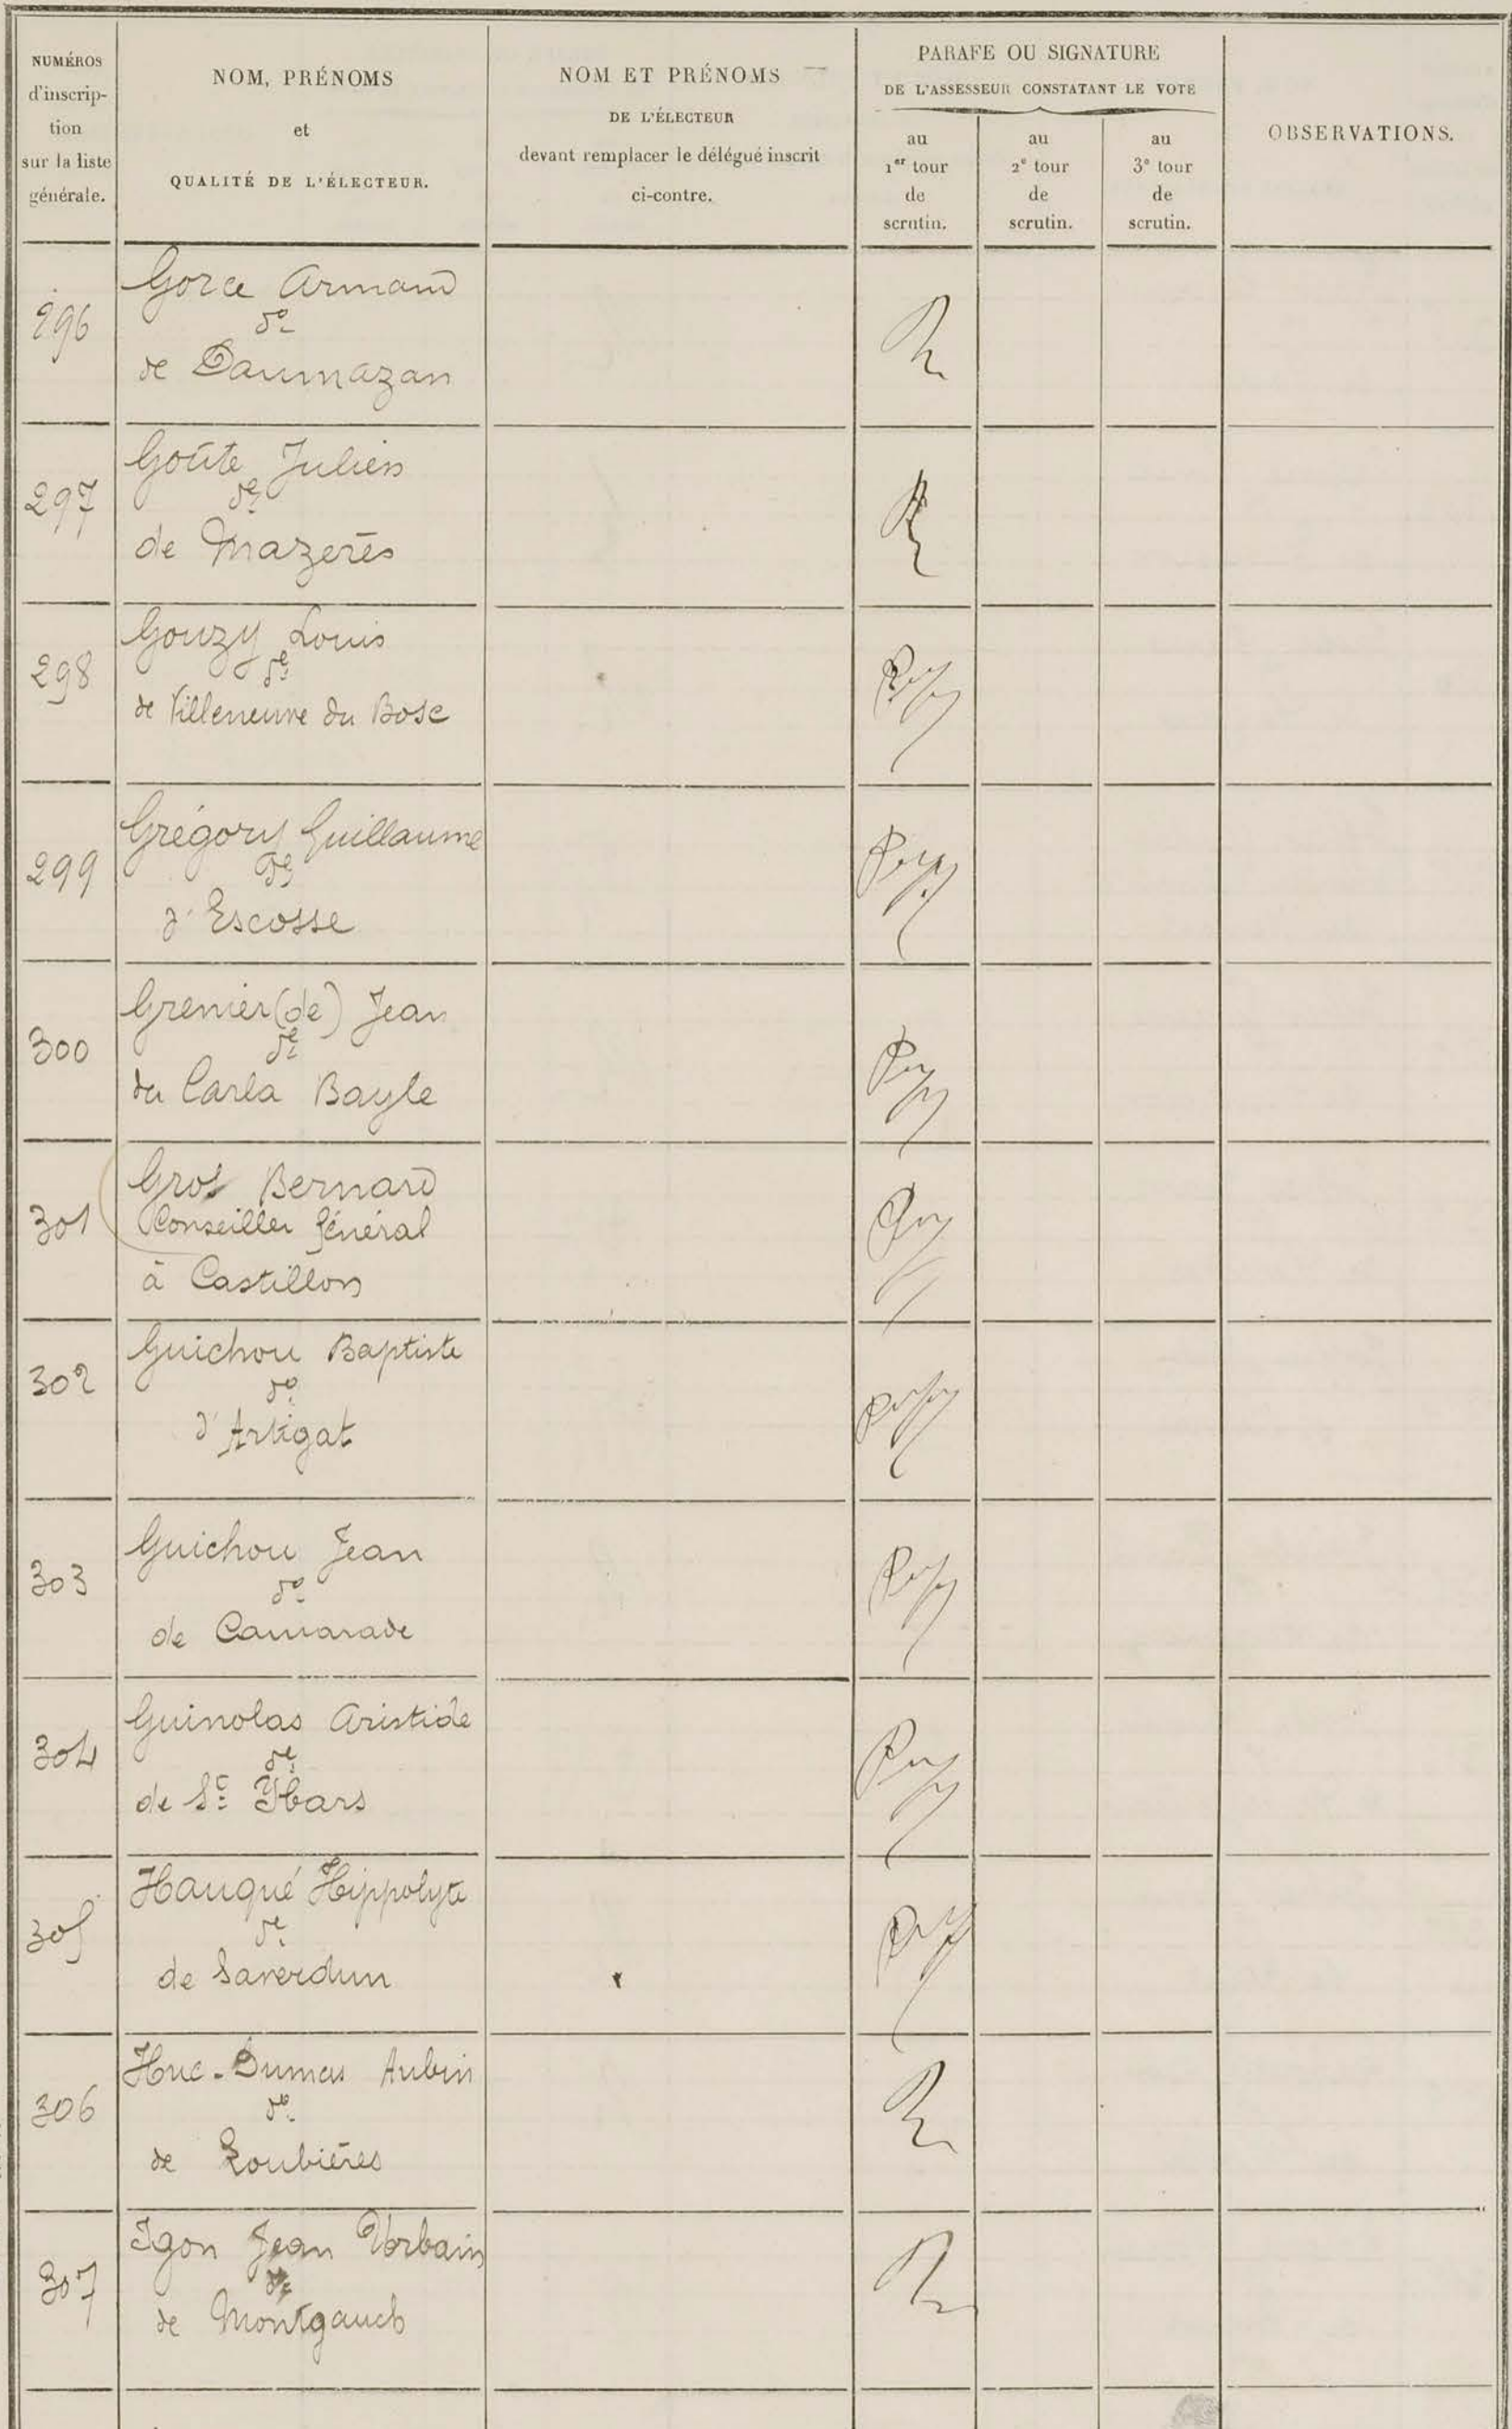 NUMÉROS
d'inscrip-
tion
sur la liste
générale.
NOM, PRÉNOMS
et
QUALITÉ DE L'ÉLECTEUR.
NOM ET PRÉNOMS
DE L'ÉLECTEUR
devant remplacer le délégué inscrit
ci-contre.
PARAFE OU SIGNATURE
DE L'ASSESSEUR CONSTATANT LE VOTE
au
1er tour
de
scrutin.
au
2e tour
de
scrutin.
au
3e tour
de
scrutin.
OBSERVATIONS.
296
Gorce Armand
do
de Daumazan
297
Goûte Julien
de
de Mazerès
298
Gouzy Louis
de
de Villeneuve du Bosc
299
Grégory Guillaume
de
d'Escosse
300
Grenier (de) Jean
de
du Carla Bayle
301
Gros Bernard
Conseiller Général
à Castillon
302
Guichou Baptiste
do
d'Artigat
303
Guichou Jean
do
de Camarade
304
Guinolas Aristide
de
de St Ybars
305
Hauqué Hippolyte
de
de Saverdun
306
Huc-Dumas Aubin
do
de Loubières
307
Igon Jean Urbain
de Montgauch